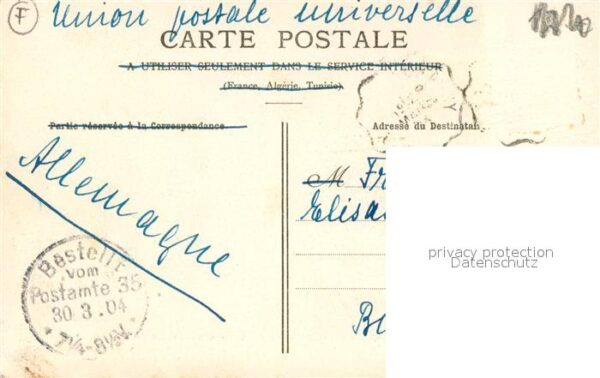 F Union postale universelle
CARTE POSTALE
A UTILISER SEULEMENT DANS LE SERVICE INTÉRIEUR
(France, Algérie, Tunisie)
Partie réservée à la Correspondance
Adresse du Destinatai
Allemagne
M Fr
Elisa
privacy protection
Datenschutz
Bestellt
vom
Postamte 35
30 3. 04